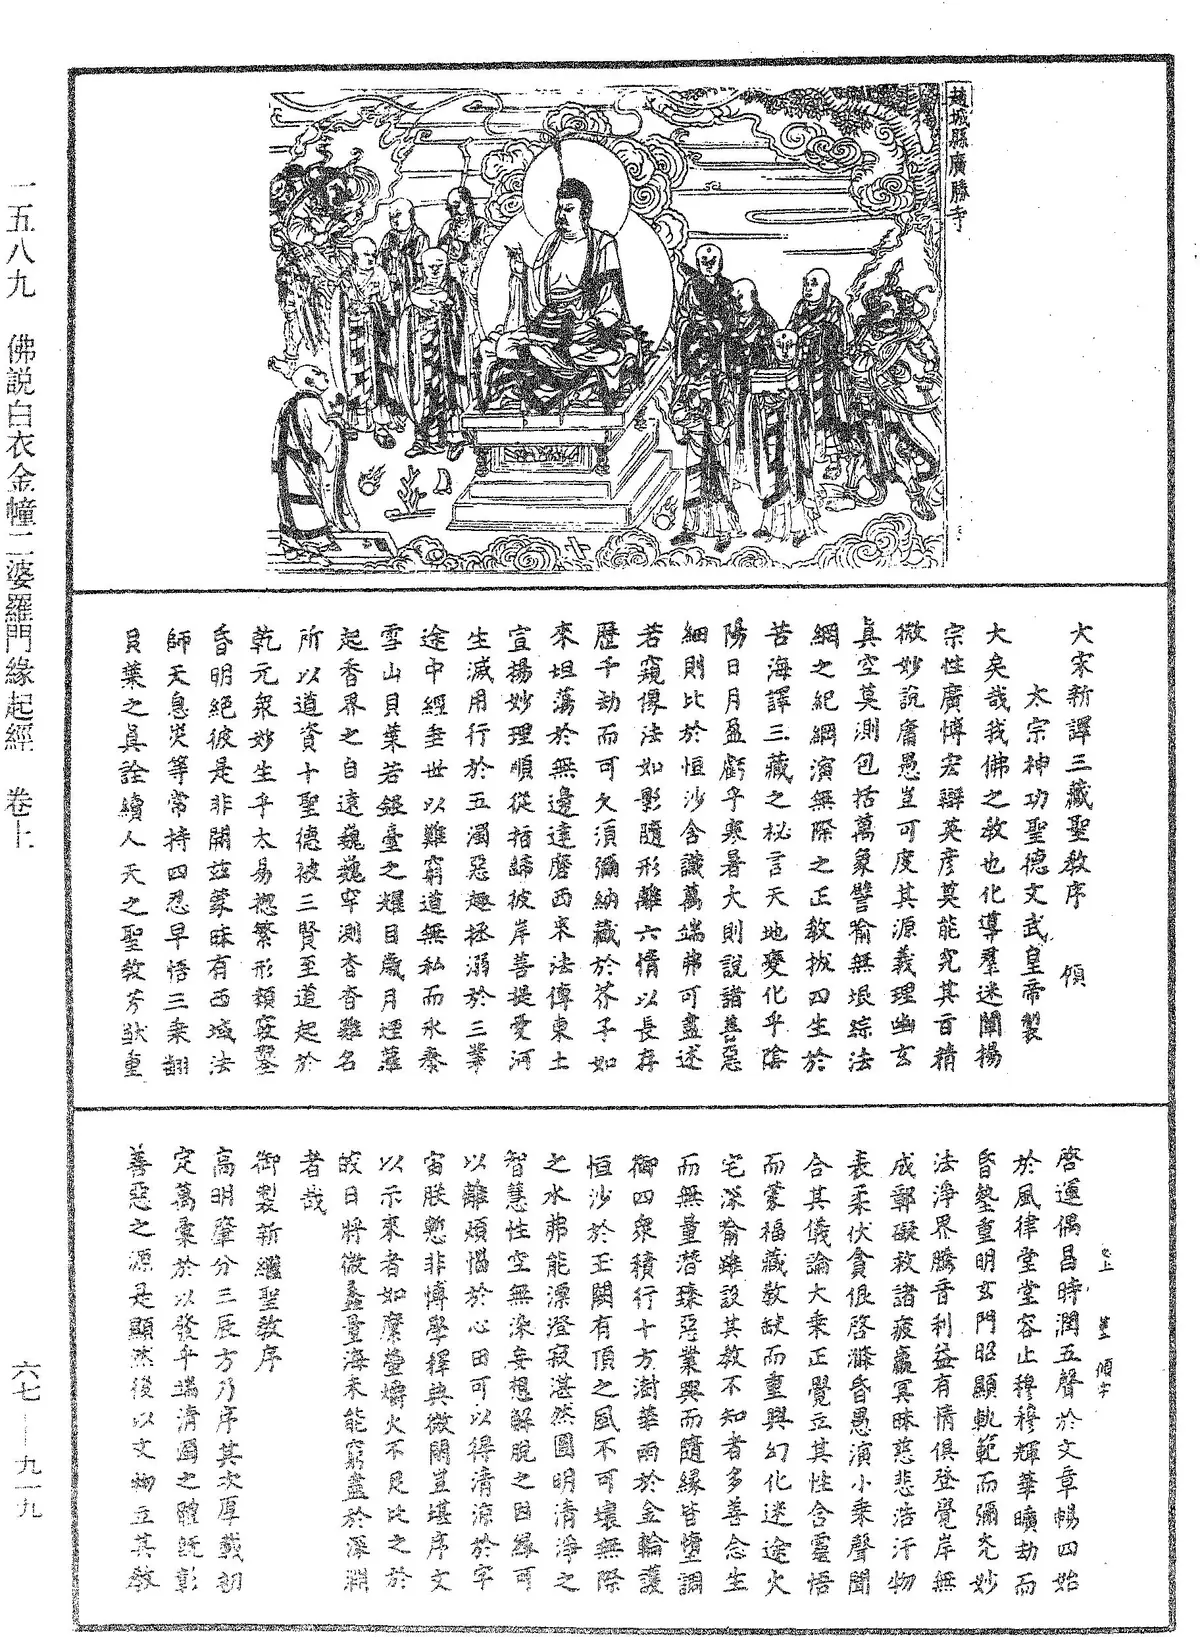 趙城縣廣勝寺
一五八九　佛說白衣金幢二婆羅門緣起經　卷上
大宋新譯三藏聖教序　傾
太宗神功聖德文武皇帝製
大矣哉我佛之教也化導羣迷闡揚
宗性廣博宏辯英彥莫能究其旨精
微妙說庸愚豈可度其源義理幽玄
真空莫測包括萬象譬喻無垠綜法
網之紀綱演無際之正教拔四生於
苦海譯三藏之祕言天地變化乎陰
陽日月盈虧乎寒暑大則說諸善惡
細則比於恒沙含識萬端弗可盡述
若窺像法如影隨形離六情以長存
歷千劫而可久須彌納藏於芥子如
來坦蕩於無邊達磨西來法傳東土
宣揚妙理順從指歸彼岸菩提愛河
生滅用行於五濁惡趣拯溺於三業
途中經垂世以難窮道無私而永泰
雪山貝葉若銀臺之耀目歲月煙蘿
起香界之自遠巍巍罕測杳杳難名
所以道資十聖德彼三賢至道起於
乾元衆妙生乎太易揔繁形類竅鑿
昏明絕彼是非開茲蒙昧有西域法
師天息災等常持四忍早悟三乘翻
貝葉之真詮續人天之聖教芳猷重
啓運偶昌時潤五聲於文章暢四始
於風律堂堂容止穆穆輝華曠劫而
昏墊重明玄門昭顯軌範而彌光妙
法淨界騰音利益有情俱登覺岸無
成鄣礙救諸疲羸冥昧慈悲浩汗物
表柔伏貪佷啓滌昏愚演小乘聲聞
合其儀論大乘正覺立其性含靈悟
而蒙福藏教缺而重興幻化迷途火
宅深喻雖設其教不知者多善念生
而無量潛臻惡業興而隨緣皆墮調
御四衆積行十方澍華雨於金輪護
恒沙於玉闕有頂之風不可壞無際
之水弗能漂澄寂湛然圓明清淨之
智慧性空無染妄想解脫之因緣可
以離煩惱於心田可以得清涼於宇
宙朕慙非博學釋典微閑豈堪序文
以示來者如縻螢爝火不足比之於
皎日將微蠡量海未能窮盡於深淵
者哉
御製新繼聖教序
高明肇分三辰方乃序其次厚載初
定萬彙於以發乎端清濁之體既彰
善惡之源是顯然後以文物立其教
卷上　傾字
六七—九一九